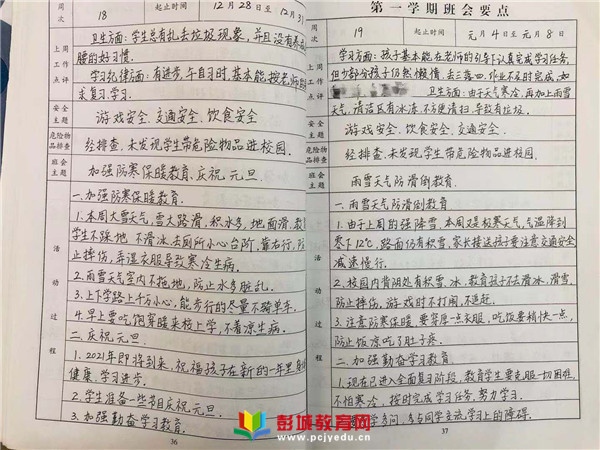 周次 18 起止时间 12月28日至12月31
上周工作点评
卫生方面:学生总有乱丢垃圾现象,并且没有养成
腰的好习惯.
学习纪律方面:有进步,午自习时,基本能按老师的
求复习,学习.
安全主题 游戏安全、交通安全、饮食安全
危险物品排查 经排查,未发现学生带危险物品进校园.
班会主题 加强防寒保暖教育、庆祝元旦.
活动过程
一.加强防寒保暖教育.
1.本周大雪天气,雪大路滑,积水多,地面滑,教
学生不踩地、不滑冰,去厕所小心台阶,靠右行,防
止摔伤,弄湿衣服导致寒冷生病.
2.雨雪天气室内不拖地,防止水多脏乱.
3.上下学路上千万小心,能步行的尽量不骑单车.
4.早上要吃饱穿暖来校上学,不着凉生病.
二.庆祝元旦.
1.2021年即将到来,祝福孩子在新的一年里身体
健康,学习进步.
2.学生准备一些节目庆祝元旦.
3.加强勤奋学习教育.
36
第一学期班会要点
周次 19 起止时间 元月4日至元月8
上周工作点评
学习方面:孩子基本能在老师的引导下认真完成学习任务,
但少部分孩子仍然懒惰,丢三落四,作业不及时完成,如
卫生方面:由于天气寒冷,再加上雨雪
天气,清洁区有冰冻,不方便清扫,导致有垃圾.
安全主题 游戏安全、饮食安全、交通安全.
危险物品排查 经排查,未发现学生带危险物品进校园.
班会主题 雨雪天气防滑倒教育
活动过程
一.雨雪天气防滑倒教育
1.由于上周的强降雪,本周又是极寒天气,气温降到
零下12℃,路面仍有积雪,家长接送孩子要注意交通安全
减速慢行.
2.校园内背阴处有积雪、冰,教育孩子不去滑冰,滑雪,
防止摔伤,游戏时不打闹,不追赶.
3.注意防寒保暖,要穿厚一点衣服,吃饭要稍快一点,
防止饭凉吃了肚子疼.
二.加强勤奋学习教育.
1.现在已进入全面复习阶段,教育学生要克服一切困难,
不怕寒冷,按时完成学习任务,努力学习.
学多问,多与同学交流学习上的障碍.
37
彭城教育网
www.pcjyedu.cn